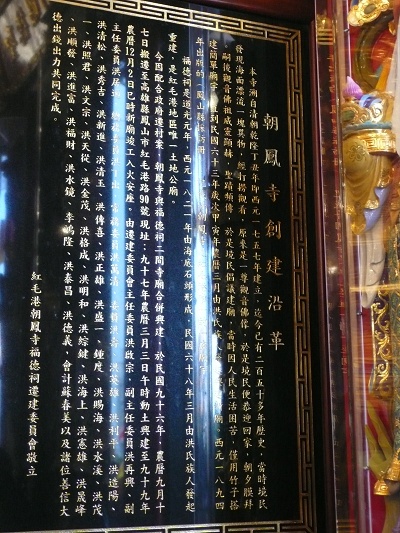 朝鳳寺創建沿革
本寺溯自清朝乾隆丁丑年即西元一七五七年建立，迄今已有二百五十多年歷史，當時境民
發現海面漂流一塊異物，經打撈觀看，原來是一尊觀音佛像，於是境民便恭迎回家，朝夕膜拜
。嗣後觀音佛祖威靈顯赫，聖蹟頻傳，於是境民倡議建廟，當時因人民生活困苦，僅用竹子搭
建簡單廟宇，直到民國六十三年歲次甲寅年農曆三月由洪氏族人 廟，西元一八九四
年出版的《鳳山縣采訪冊
福德祠是道光元年，西元一八二一年由海底石頭形成，民國六十八年三月由洪氏族人發起
重建，是紅毛港地區唯一土地公廟。
今因配合政府遷村案，朝鳳寺與福德祠二間寺廟合併興建，於民國九十六年農曆九月十
七日搬遷至高雄縣鳳山市紅毛港路90號現址；九十七年農曆三月三日午時動土興建至九十九年
農曆12月2日巳時新廟竣工入火安座。由遷建委員會主任委員洪啟宗，副主任委員洪再興、副
主任委員洪居 總務委員洪丁出、常務委員洪萬清、委員洪 壽、洪英雄、洪利平、洪造陽、
洪清松、洪秀吉、洪新進、洪清玉、洪傳喜、洪正雄、洪盛一、鍾度、洪賜海、洪水溪、洪茂
一、洪照君、洪文宗、洪天從、洪金茂、洪格成、洪明和、洪綜鍵、洪海上、洪憲雄、洪晟峰
、洪順發、洪進富、洪福財、洪水鏡、李鳴隆、洪泰昌、洪德義，會計蘇春美以及諸位善信大
德出錢出力共同完成。
紅毛港朝鳳寺福德祠遷建委員會敬立